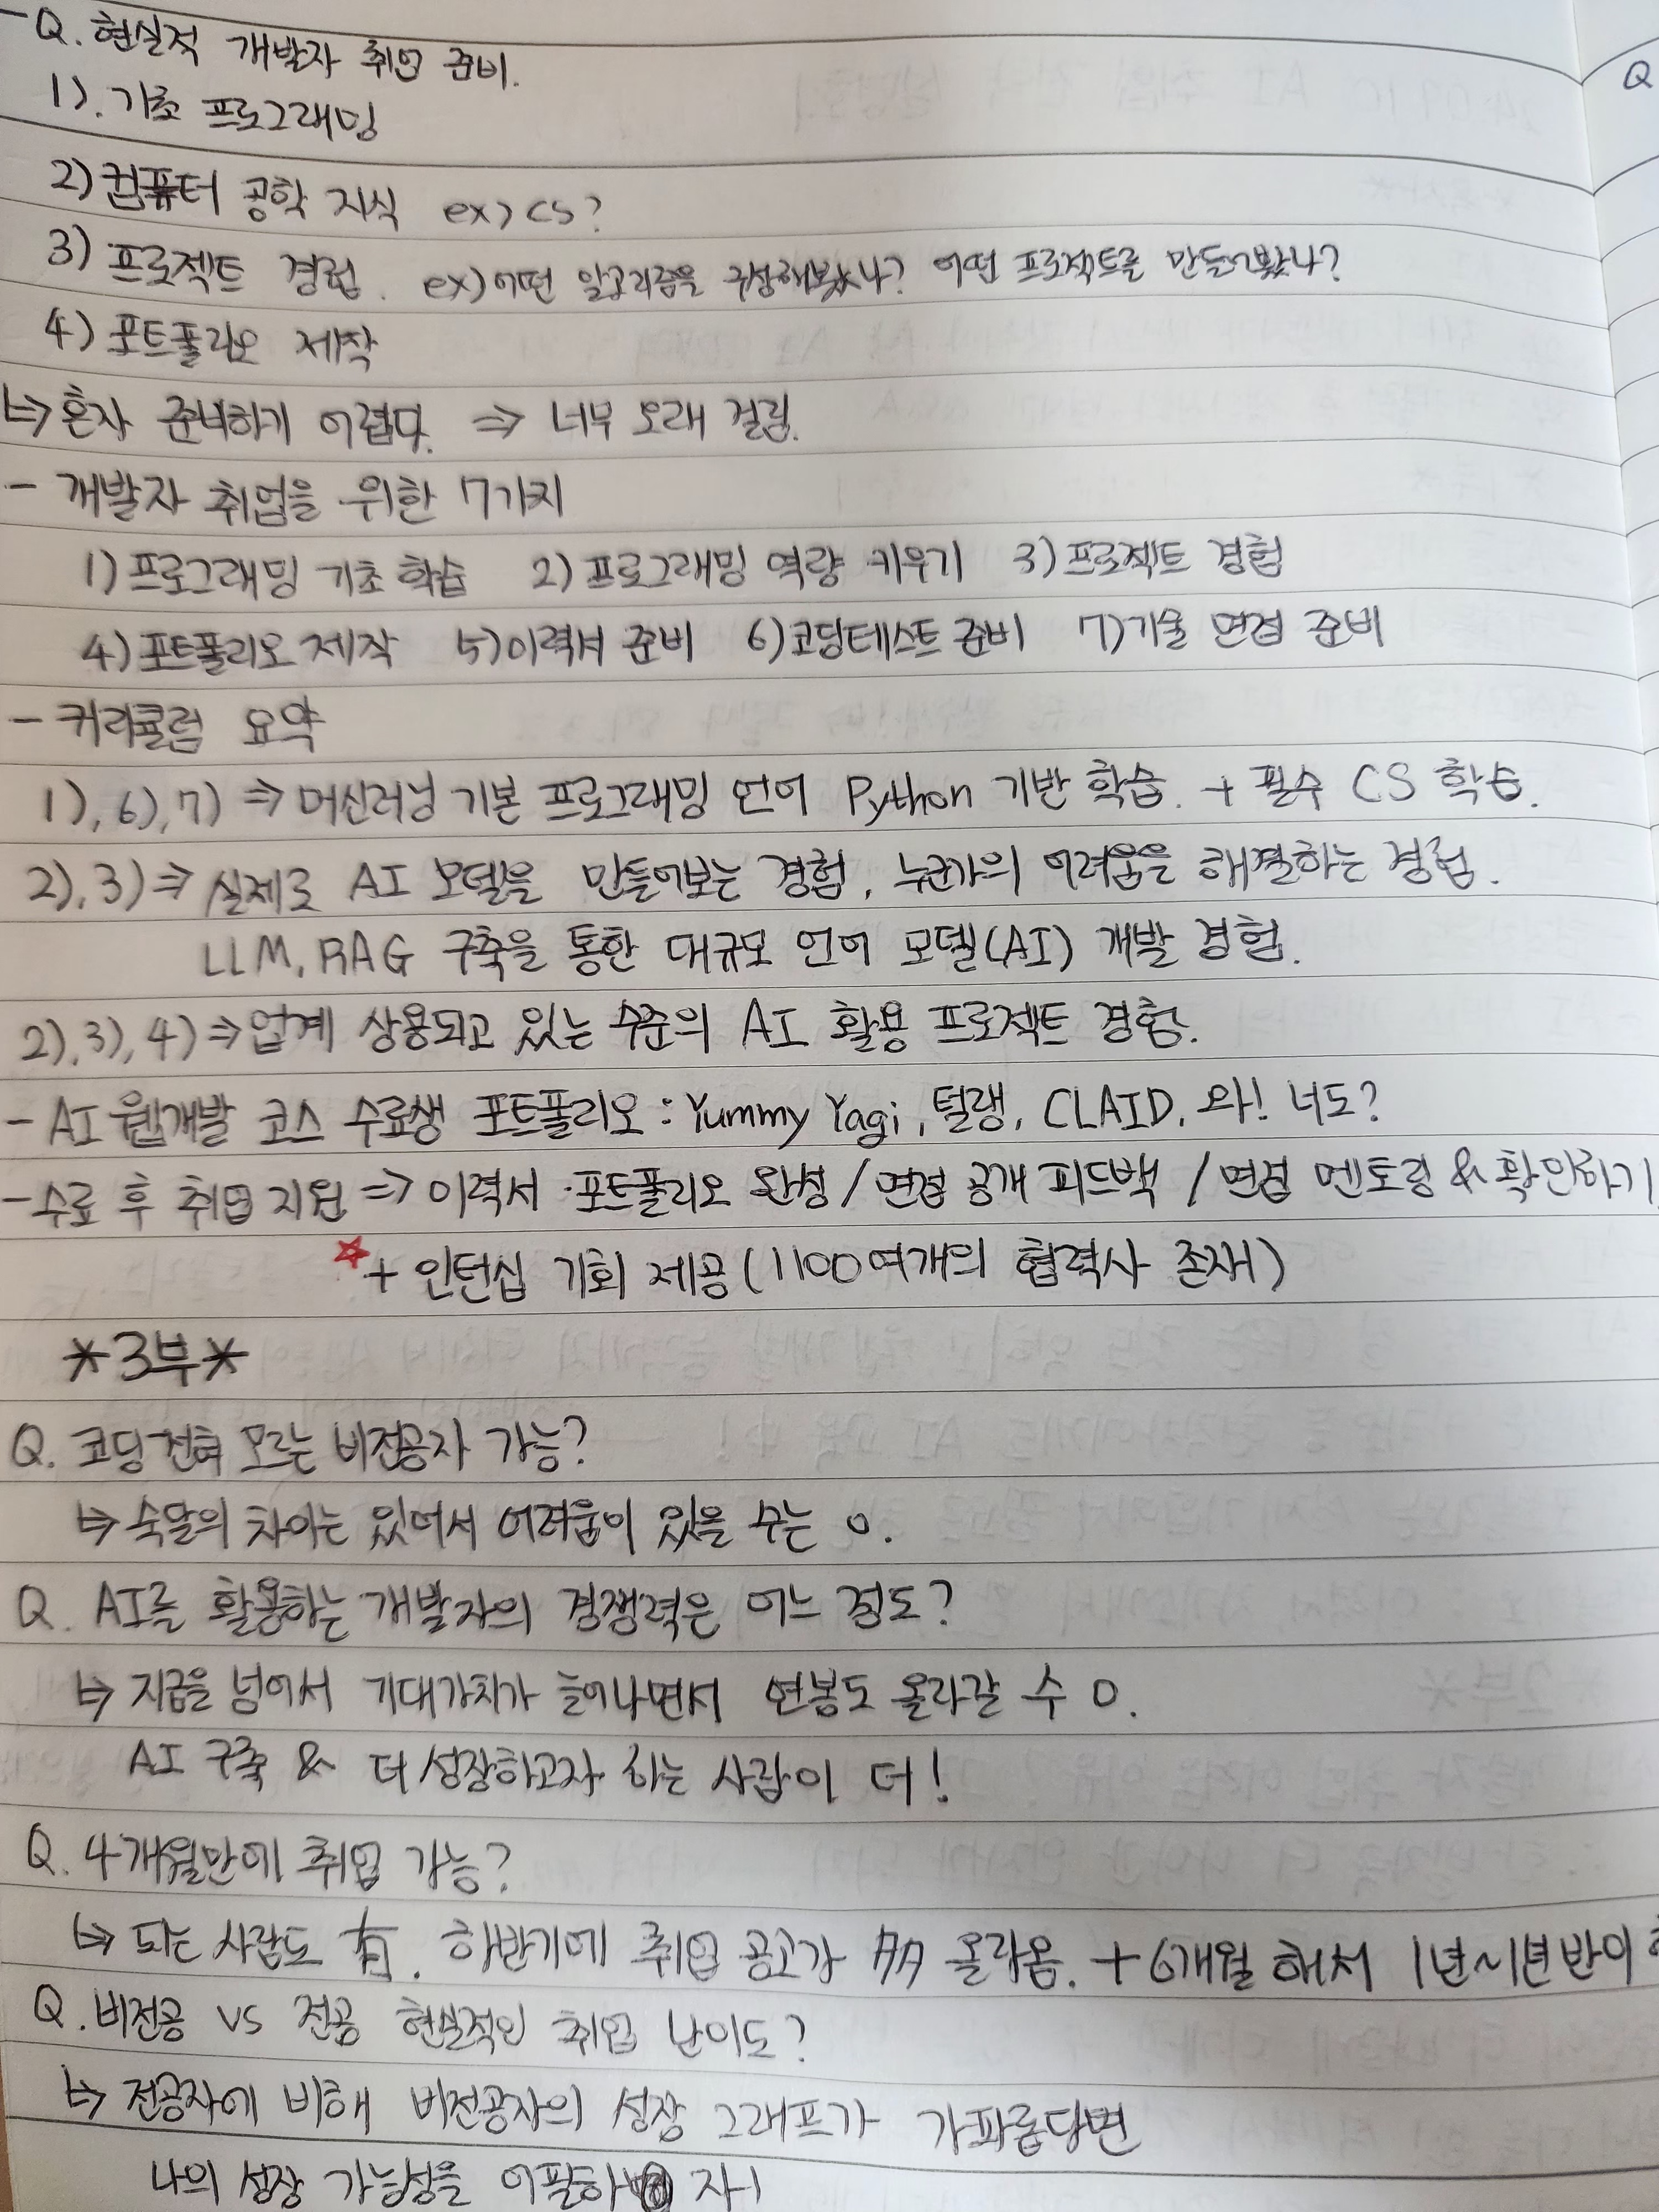 - Q. 현실적 개발자 취업 준비.
1). 기초 프로그래밍
2) 컴퓨터 공학 지식 ex) CS?
3) 프로젝트 경험. ex) 어떤 알고리즘을 구성해봤나? 어떤 프로젝트를 만들어봤나?
4) 포트폴리오 제작
↳ 혼자 준비하기 어렵다. ⇒ 너무 오래 걸림.
- 개발자 취업을 위한 7가지
1) 프로그래밍 기초 학습 2) 프로그래밍 역량 키우기 3) 프로젝트 경험
4) 포트폴리오 제작 5) 이력서 준비 6) 코딩테스트 준비 7) 기술 면접 준비
- 커리큘럼 요약
1), 6), 7) ⇒ 머신러닝 기본 프로그래밍 언어 Python 기반 학습. + 필수 CS 학습.
2), 3) ⇒ 실제로 AI 모델을 만들어보는 경험, 누군가의 어려움을 해결하는 경험.
LLM, RAG 구축을 통한 대규모 언어 모델(AI) 개발 경험.
2), 3), 4) ⇒ 업계 상용되고 있는 수준의 AI 활용 프로젝트 경험.
- AI 웹개발 코스 수료생 포트폴리오 : Yummy Yagi, 털랭, CLAID, 와! 너도?
- 수료 후 취업 지원 ⇒ 이력서·포트폴리오 완성 / 면접 공개 피드백 / 면접 멘토링 & 확인하기
☆ + 인턴십 기회 제공 (1100여개의 협력사 존재)
*3부*
Q. 코딩 전혀 모르는 비전공자 가능?
↳ 숙달의 차이는 있어서 어려움이 있을 수는 o.
Q. AI를 활용하는 개발자의 경쟁력은 어느 정도?
↳ 지금을 넘어서 기대가치가 늘어나면서 연봉도 올라갈 수 o.
AI 구축 & 더 성장하고자 하는 사람이 더!
Q. 4개월만에 취업 가능?
↳ 되는 사람도 有. 하반기에 취업 공고가 多 올라옴. + 6개월 해서 1년~1년 반이
Q. 비전공 vs 전공 현실적인 취업 난이도?
↳ 전공자에 비해 비전공자의 성장 그래프가 가파름답변
나의 성장 가능성을 어필하 자!
Q